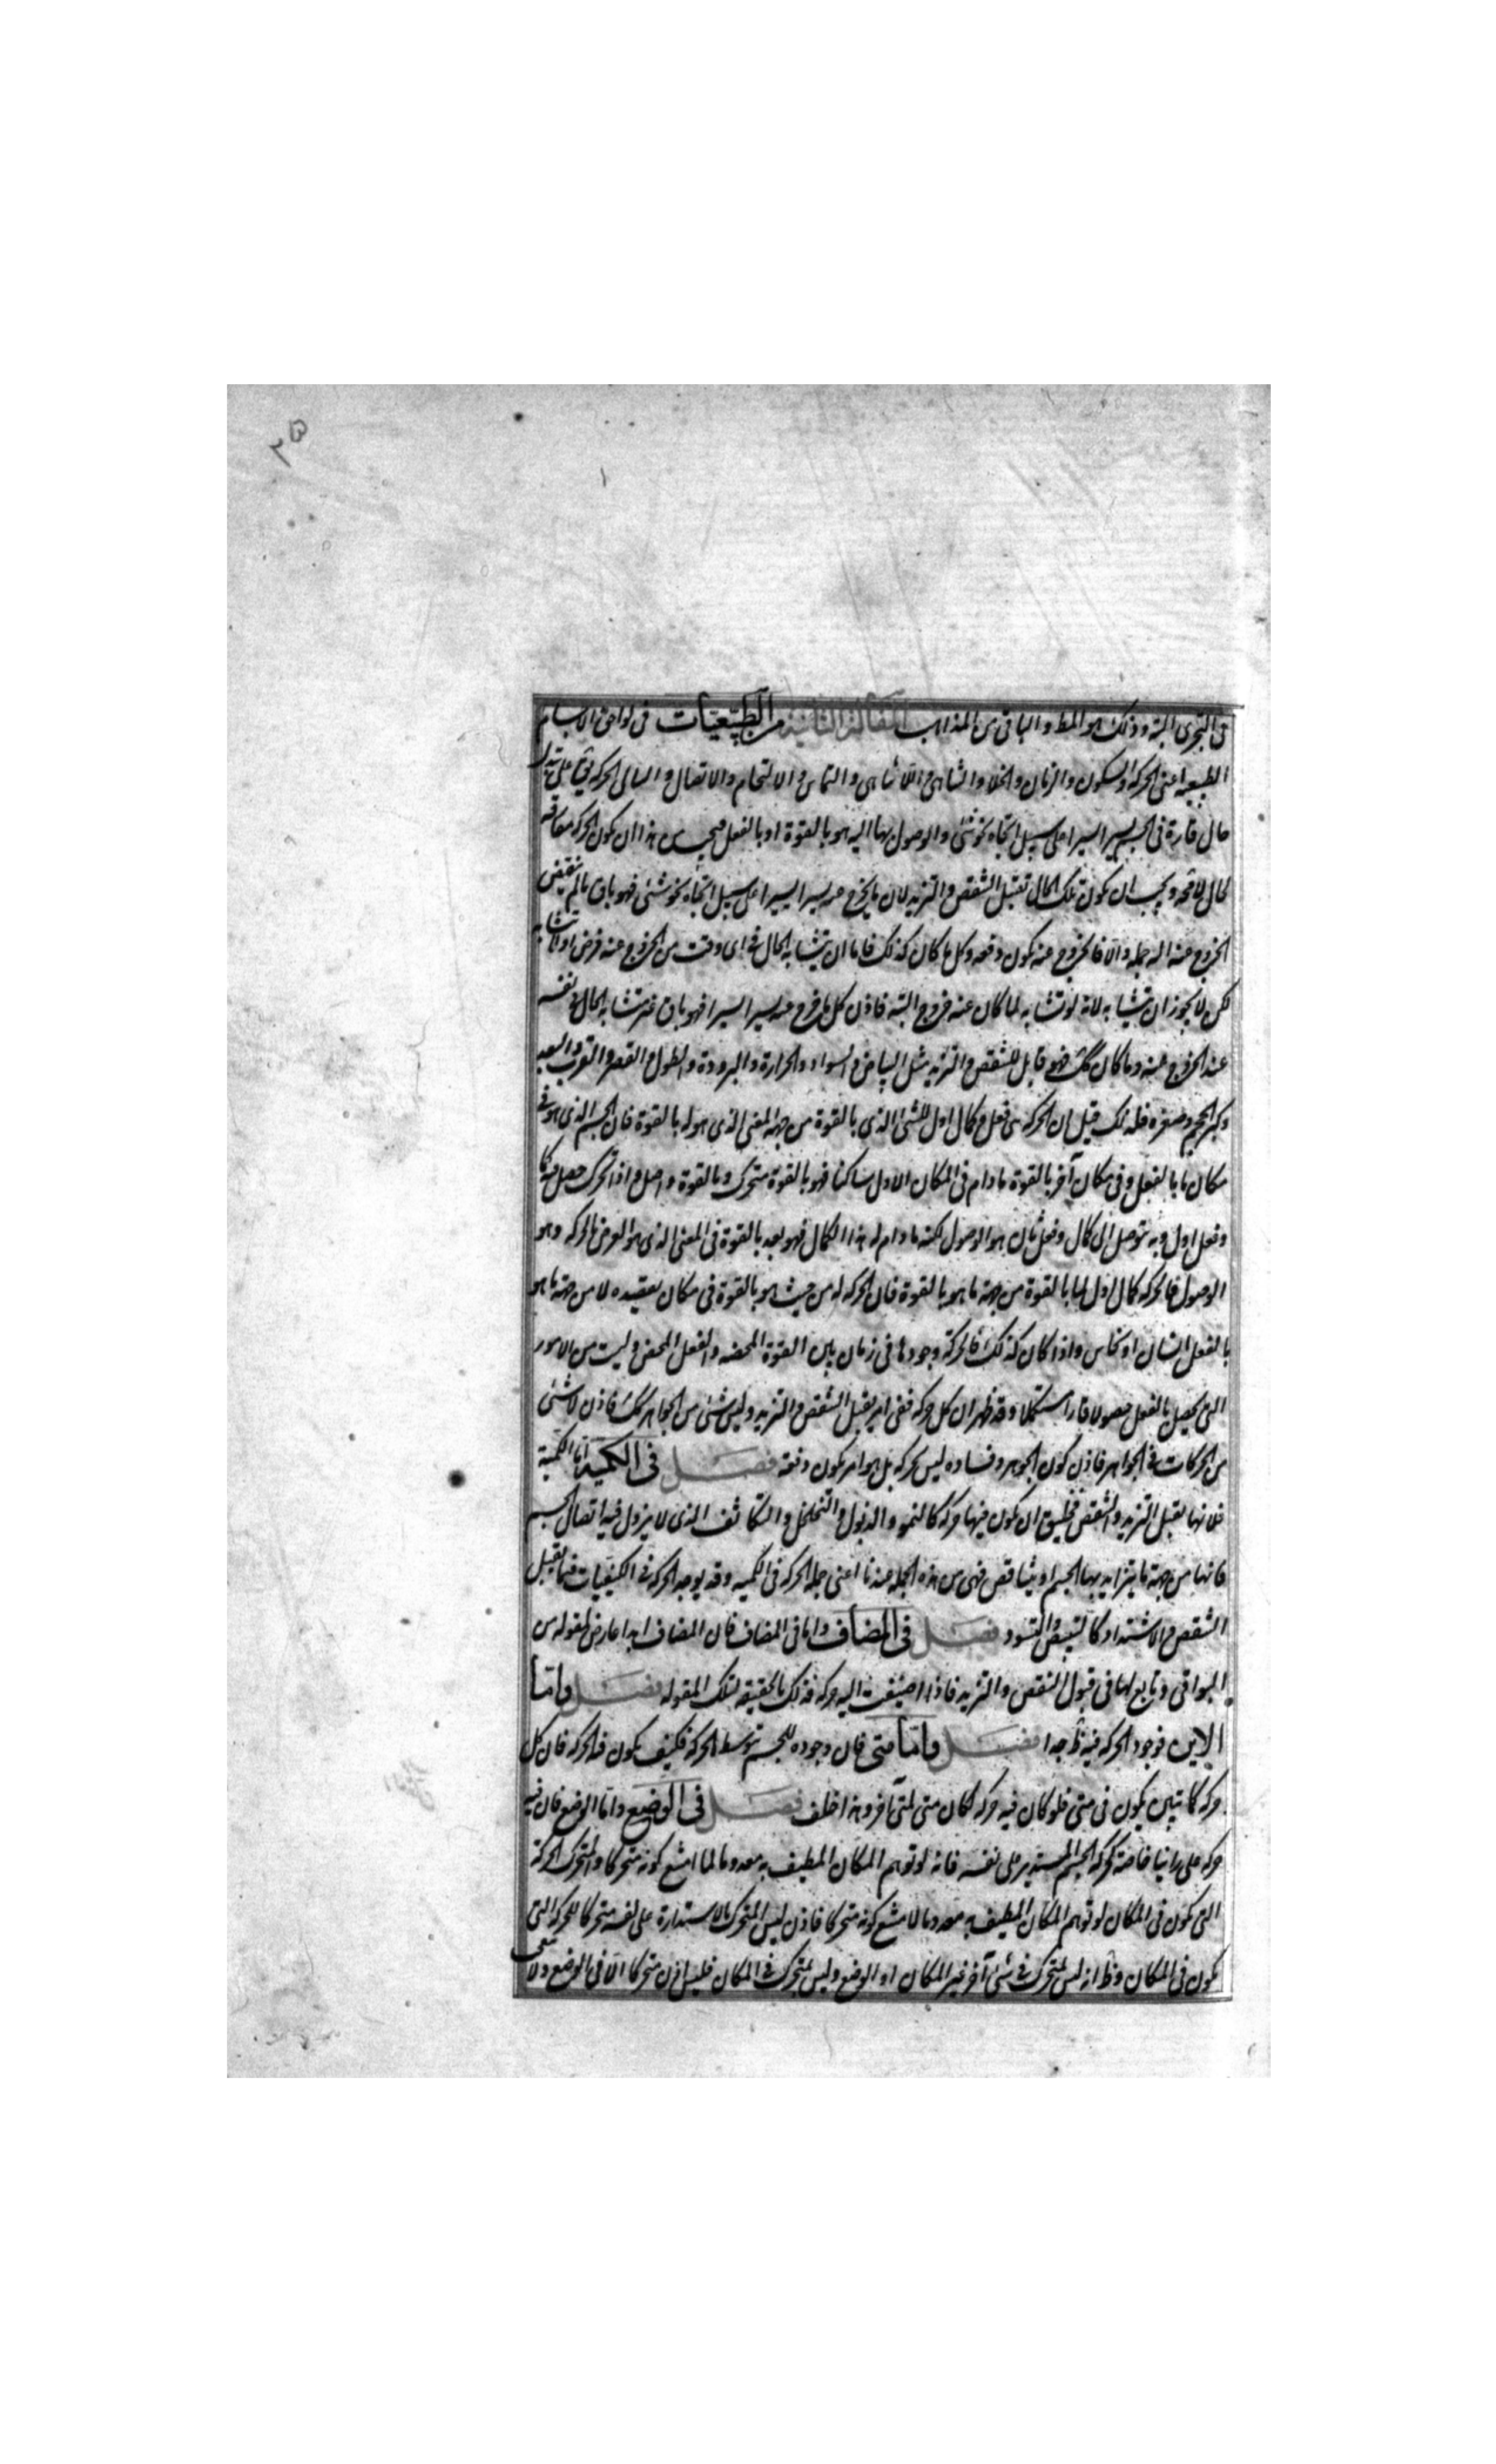 فى التجزى البتة وذلك هو المط والباقى من المذاهب المقالة الثانية من الطبيعيات فى لواحق الاجسام
الطبيعيه اعنى الحركه والسكون والزمان والخلاء والتناهى واللاتناهى والتماس والالتحام والاتصال والتتالى الحركه تق على تبدل
حال قارة فى الجسم يسيرا يسيرا على سبيل اتجاه نحو شئ والوصول بها اليه هو بالقوة او بالفعل فيجب من هذا ان يكون الحركه مفارقه
لحال لا محه ويجب ان يكون تلك الحال تقبل التنقص والتزيد لان ما يخرج عنه يسيرا يسيرا على سبيل اتجاه نحو شئ فهو باق ما لم ينقض
الخروج عنه اله جمله والا فالخروج عنه يكون دفعه وكل ما كان كذلك فاما ان يتشابه الحال فى اى وقت من الخروج عنه فرض او لا يتشابه
لكن لا يجوز ان يتشابه لانه لو تشابه لما كان عنه خروج البته فاذن كل ما خرج عنه يسيرا يسيرا فهو باق غير متشابه الحال فى نفسه
عند الخروج عنه وما كان كك فهو قابل للتنقص والتزيد مثل البياض والسواد والحرارة والبرودة والطول والقصر والقرب والبعد
وكبر الحجم وصغره فلذلك قيل ان الحركه هى فعل وكمال اول للشئ الذى بالقوة من جهة المعنى الذى هو له بالقوة فان الجسم الذى هو فى
مكان ما بالفعل وفى مكان آخر بالقوة ما دام فى المكان الاول ساكنا فهو بالقوة متحرك وبالقوة واصل واذا تحرك حصل فيه كمال
وفعل اول وبه يتوصل الى كمال وفعل ثان هو الوصول لكنه ما دام له هذا الكمال فهو بعد بالقوة فى المعنى الذى هو الغرض بالحركه وهو
الوصول فالحركه كمال اول لما بالقوة من جهة ما هو بالقوة فان الحركه له من حيث هو بالقوة فى مكان يقصده لا من جهة ما هو
بالفعل انسان او نحاس واذا كان كذلك فالحركة وجودها فى زمان بين القوة المحضه والفعل المحض وليست من الامور
التى يحصل بالفعل حصولا قارا مستكملا وقد ظهر ان كل حركه ففى امر يقبل التنقص والتزيد وليس شئ من الجواهر كك فاذن لا شئ
من الحركات فى الجواهر فاذن كون الجوهر وفساده ليس بحركه بل هو امر يكون دفعة فصل فى الكمية اما الكمية
فلانها تقبل التزيد والتنقص فخليق ان يكون فيها حركه كالنمو والذبول والتخلخل والتكاثف الذى لا يزول فيه اتصال الجسم
فانها من جهة ما يتزايد بها الجسم او يتناقص فهى من هذه الجمله عندنا اعنى جملة الحركه فى الكميه وقد يوجد الحركه فى الكيفيات فيما يقبل
التنقص والاشتداد كالتبيض والتسود فصل فى المضاف واما فى المضاف فان المضاف ابدا عارض لمقوله من
البواقى وتابع لها فى قبول التنقص والتزيد فاذا اضيفت اليه حركه فذلك بالحقيقه لتلك المقوله فصل واما
الاين فوجود الحركه فيه ظ جدا فصل واما متى فان وجوده للجسم بتوسط الحركه فكيف يكون فيه الحركه فان كل
حركه كما تبين يكون فى متى فلو كان فيه حركه لكان متى لمتى آخر وهذا خلف فصل فى الوضع واما الوضع فان فيه
حركه على راينا خاصة كحركه الجسم المستدير على نفسه فانه لو توهم المكان المطيف به معدوما لما امتنع كونه متحركا والمتحرك الحركة
التى يكون فى المكان لو توهم المكان المطيف به معدوما لامتنع كونه متحركا فاذن ليس المتحرك بالاستدارة على نفسه متحركا الحركة التى
يكون فى المكان وظ انه ليس لمتحرك فى شئ آخر غير المكان او الوضع وليس بمتحرك فى المكان فليس اذن متحركا الا فى الوضع ولا